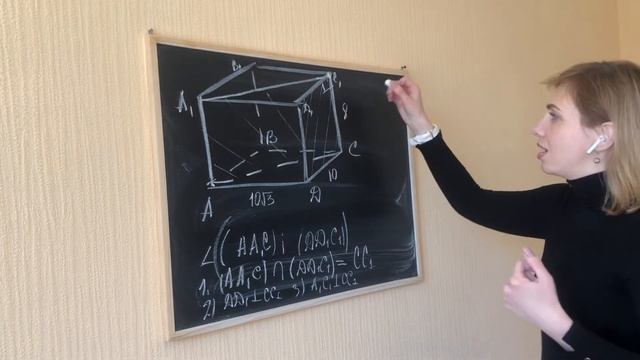 B₁
C₁
A₁
D₁
8
B
C
10
A
10√3
D
∠ (AA₁C) і (DD₁C₁)
1. (AA₁C) ∩ (DD₁C₁) = CC₁
2) DD₁⊥CC₁ 3) A₁C₁⊥CC₁